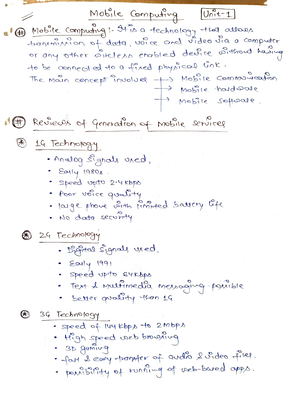 Mobile Computing
Unit-1
Mobile Computing : It is a technology that allows
transmission of data, voice and video via a computer
or any other wireless enabled device without having
to be connected to a fixed physical link.
The main concept involves → Mobile Communication
→ Mobile hardware
→ Mobile software.
Reviews of Generation of Mobile Services
1G Technology
• Analog signals used,
• Early 1980s.
• Speed upto 2.4 kbps
• Poor voice quality
• large phone with limited battery life
• No data security
2G Technology
• Digital signals used,
• Early 1991
• Speed upto 64 kbps
• Text & Multimedia messaging possible
• better quality than 1G
3G Technology
• speed of 144 kbps to 2 Mbps
• High speed web browsing
• 3D gaming
• fast & easy transfer of audio & video files.
• possibility of running of web-based apps.